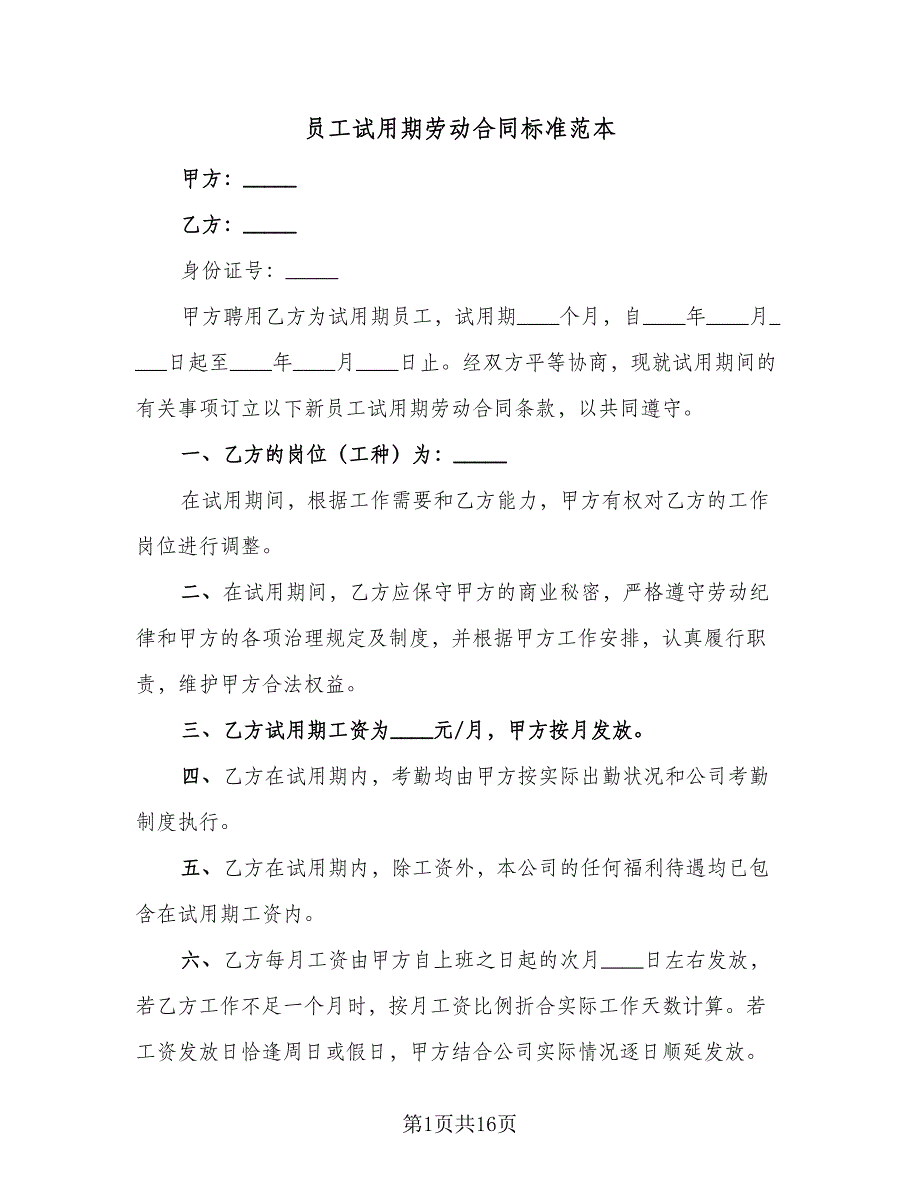 员工试用期劳动合同标准范本
甲方：_____
乙方：_____
身份证号：_____
甲方聘用乙方为试用期员工，试用期____个月，自____年____月_
___日起至____年____月____日止。经双方平等协商，现就试用期间的
有关事项订立以下新员工试用期劳动合同条款，以共同遵守。
一、乙方的岗位（工种）为：_____
在试用期间，根据工作需要和乙方能力，甲方有权对乙方的工作
岗位进行调整。
二、在试用期间，乙方应保守甲方的商业秘密，严格遵守劳动纪
律和甲方的各项治理规定及制度，并根据甲方工作安排，认真履行职
责，维护甲方合法权益。
三、乙方试用期工资为____元/月，甲方按月发放。
四、乙方在试用期内，考勤均由甲方按实际出勤状况和公司考勤
制度执行。
五、乙方在试用期内，除工资外，本公司的任何福利待遇均已包
含在试用期工资内。
六、乙方每月工资由甲方自上班之日起的次月____日左右发放，
若乙方工作不足一个月时，按月工资比例折合实际工作天数计算。若
工资发放日恰逢周日或假日，甲方结合公司实际情况逐日顺延发放。
第1页共16页